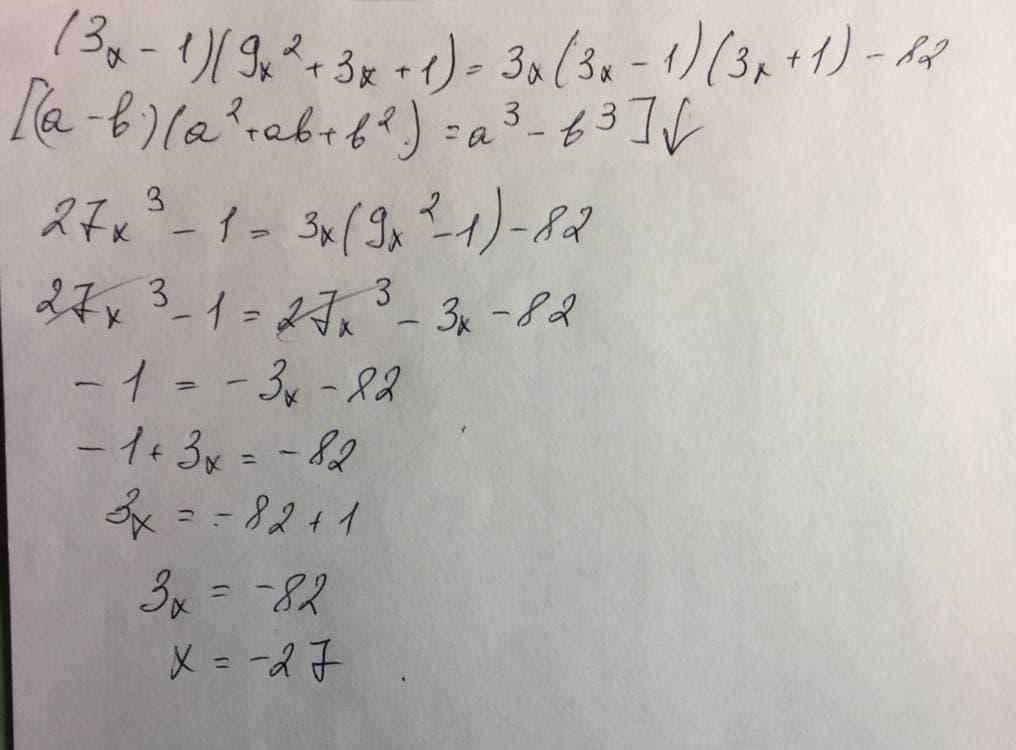 (3x - 1)(9x² + 3x + 1) = 3x(3x - 1)(3x + 1) - 82
[(a - b)(a² + ab + b²) = a³ - b³] ↓
27x³ - 1 = 3x(9x² - 1) - 82
27x³ - 1 = 27x³ - 3x - 82
- 1 = - 3x - 82
- 1 + 3x = - 82
3x = - 82 + 1
3x = - 82
x = - 27